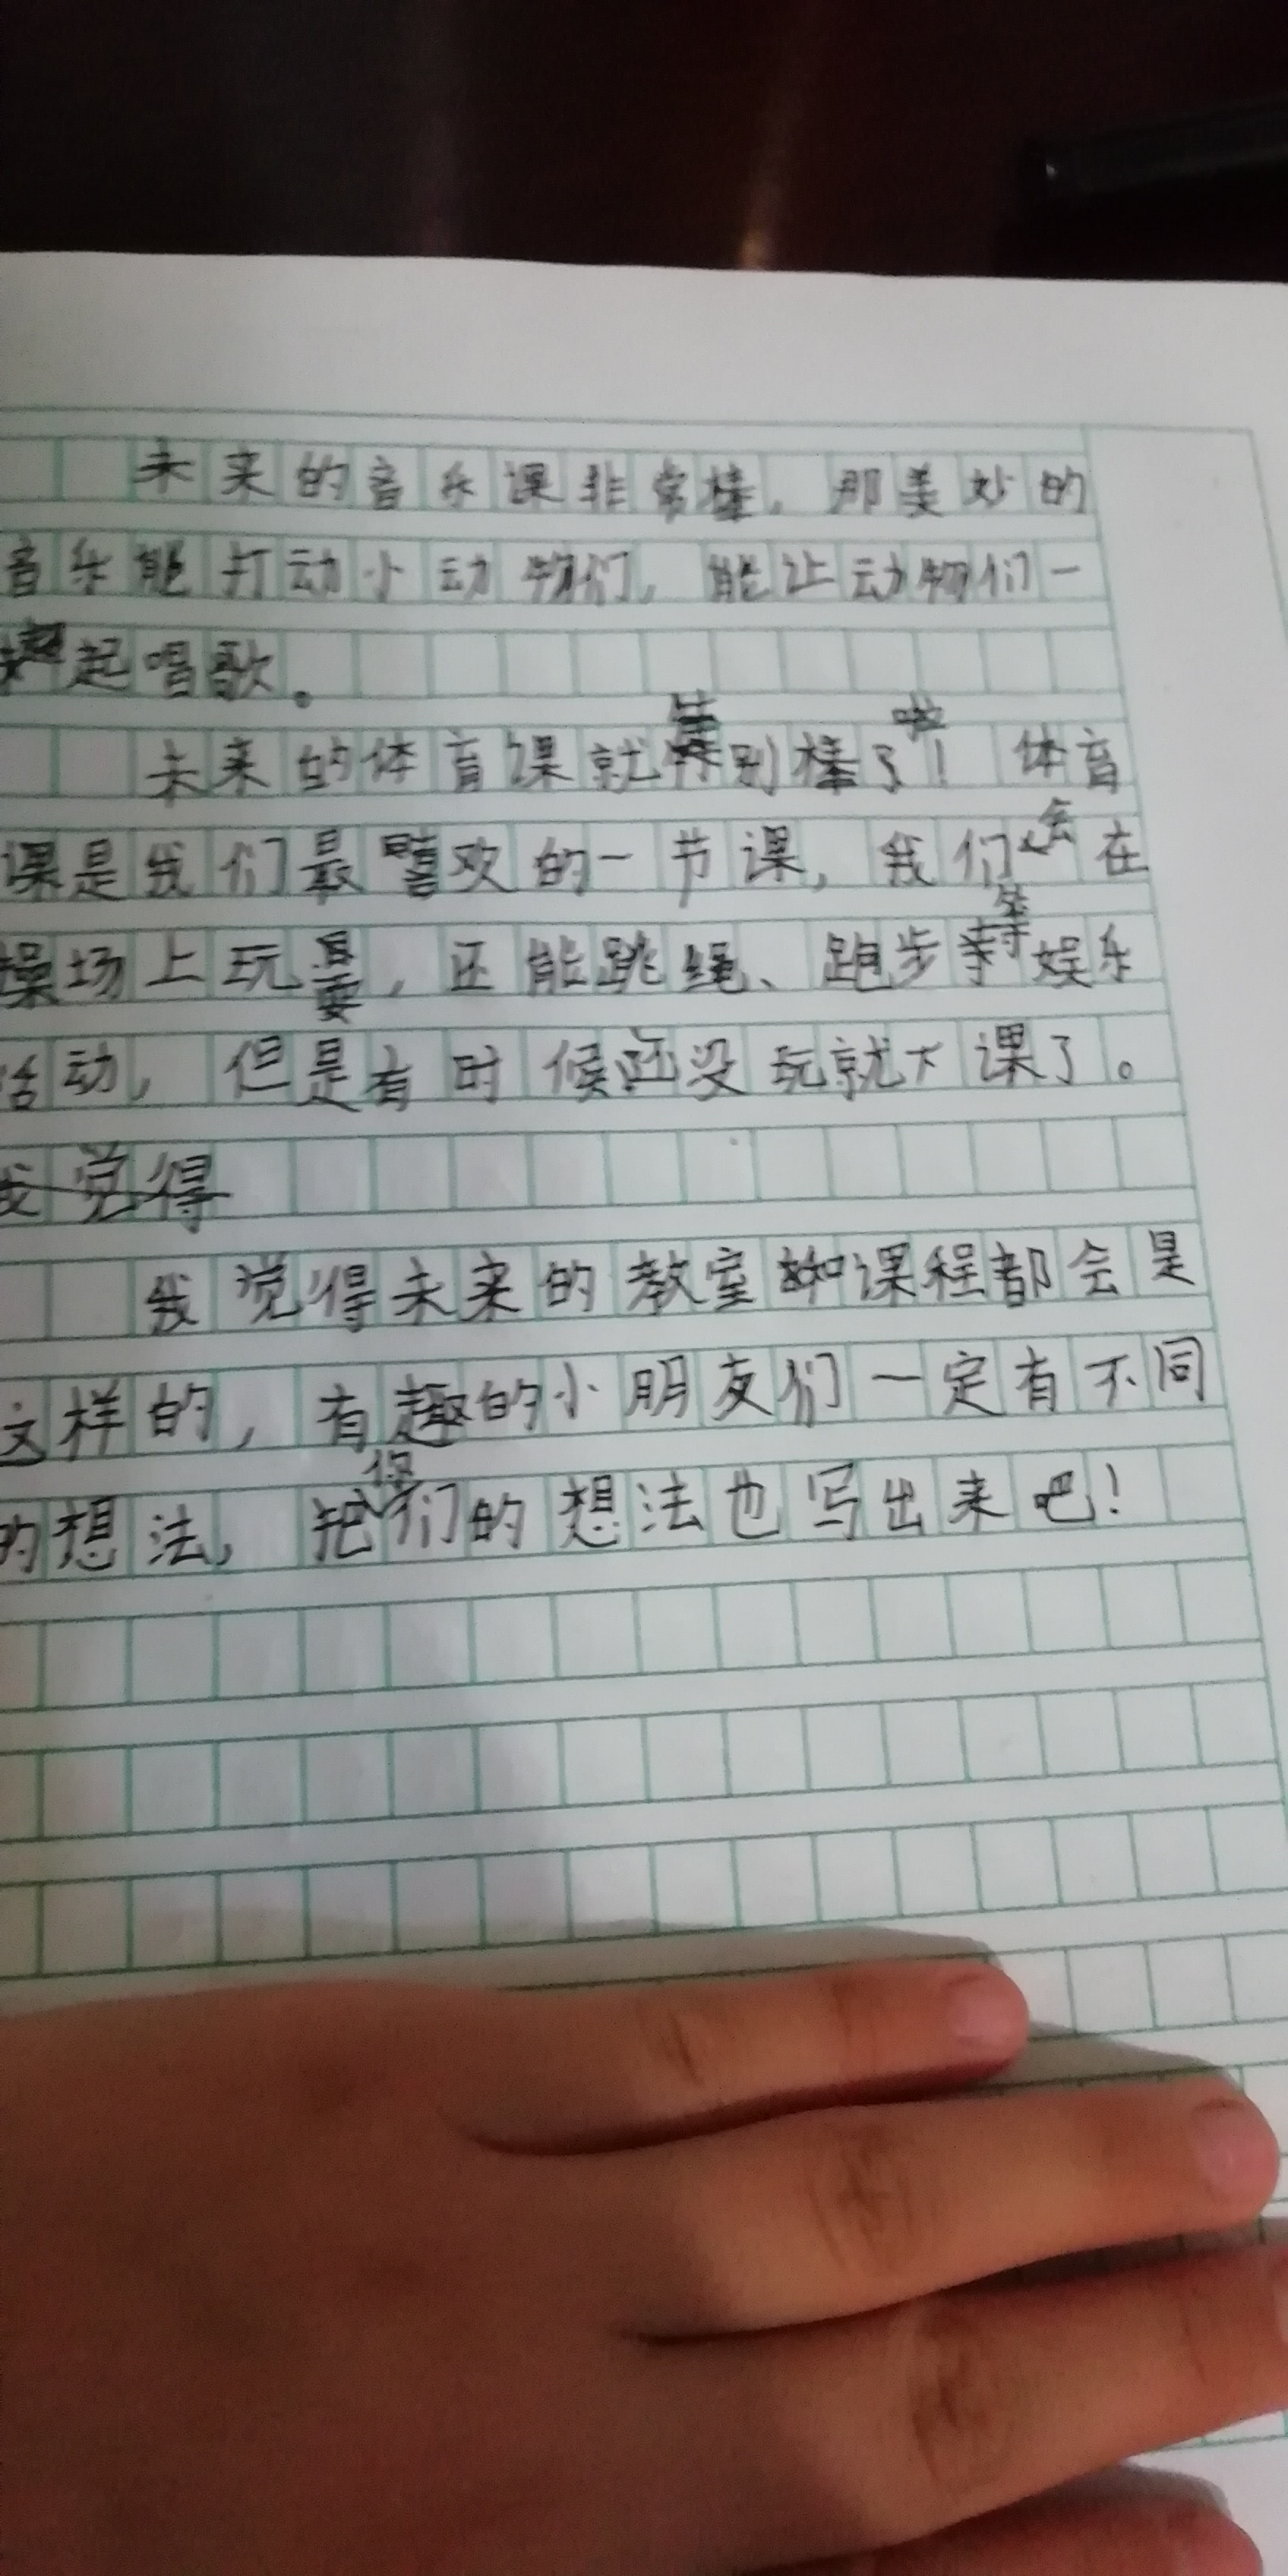 未来的音乐课非常棒，那美妙的
音乐能打动小动物们，能让动物们一
起唱歌。
未来的体育课就特别棒了啦！体育
课是我们最喜欢的一节课，我们会在
操场上玩耍，还能跳绳、跑步等娱乐
活动，但是有时候还没玩就下课了。
我觉得
我觉得未来的教室和课程都会是
这样的，有趣的小朋友们一定有不同
的想法，把你们的想法也写出来吧！